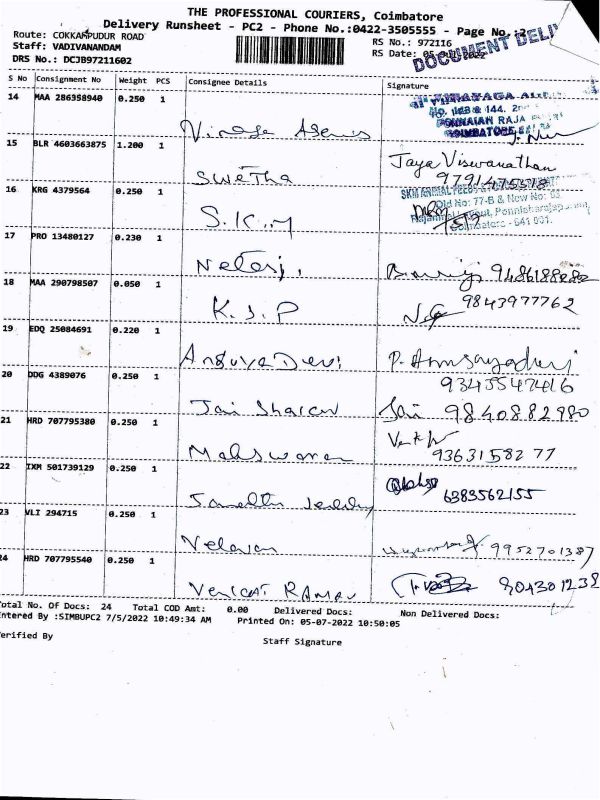 THE PROFESSIONAL COURIERS, Coimbatore
Delivery Runsheet - PC2 - Phone No.:0422-3505555 - Page No.:2
Route: COKKAMPUDUR ROAD
RS No.: 972116
Staff: VADIVANANDAM
RS Date: 05
DOCUMENT DELI
DRS No.: DCJB97211602
S No Consignment No Weight PCS Consignee Details Signature
14 MAA 286358940 0.250 1
PONNAIAH RAJA
COIMBATORE
15 BLR 4603663875 1.200 1 Swetha Jaya Viswanathan
16 KRG 4379564 0.250 1 S.K.M
Old No: 77-B & New No: 
Coimbatore - 641 001.
17 PRO 13480127 0.230 1 Netaji. 9486188282
18 MAA 290798507 0.050 1 K.J.P 9843977762
19 EDQ 25084691 0.220 1 Devi
20 DDG 4389076 0.250 1 Jai Sharan 9840882980
21 HRD 707795380 0.250 1 9363158277
22 IXM 501739129 0.250 1 6383562155
23 VLI 294715 0.250 1 Velavan 9952701387
24 HRD 707795540 0.250 1 VENKAT RAMAN
Total No. Of Docs: 24 Total COD Amt: 0.00 Delivered Docs: Non Delivered Docs:
Entered By :SIMBUPC2 7/5/2022 10:49:34 AM Printed On: 05-07-2022 10:50:05
Verified By Staff Signature